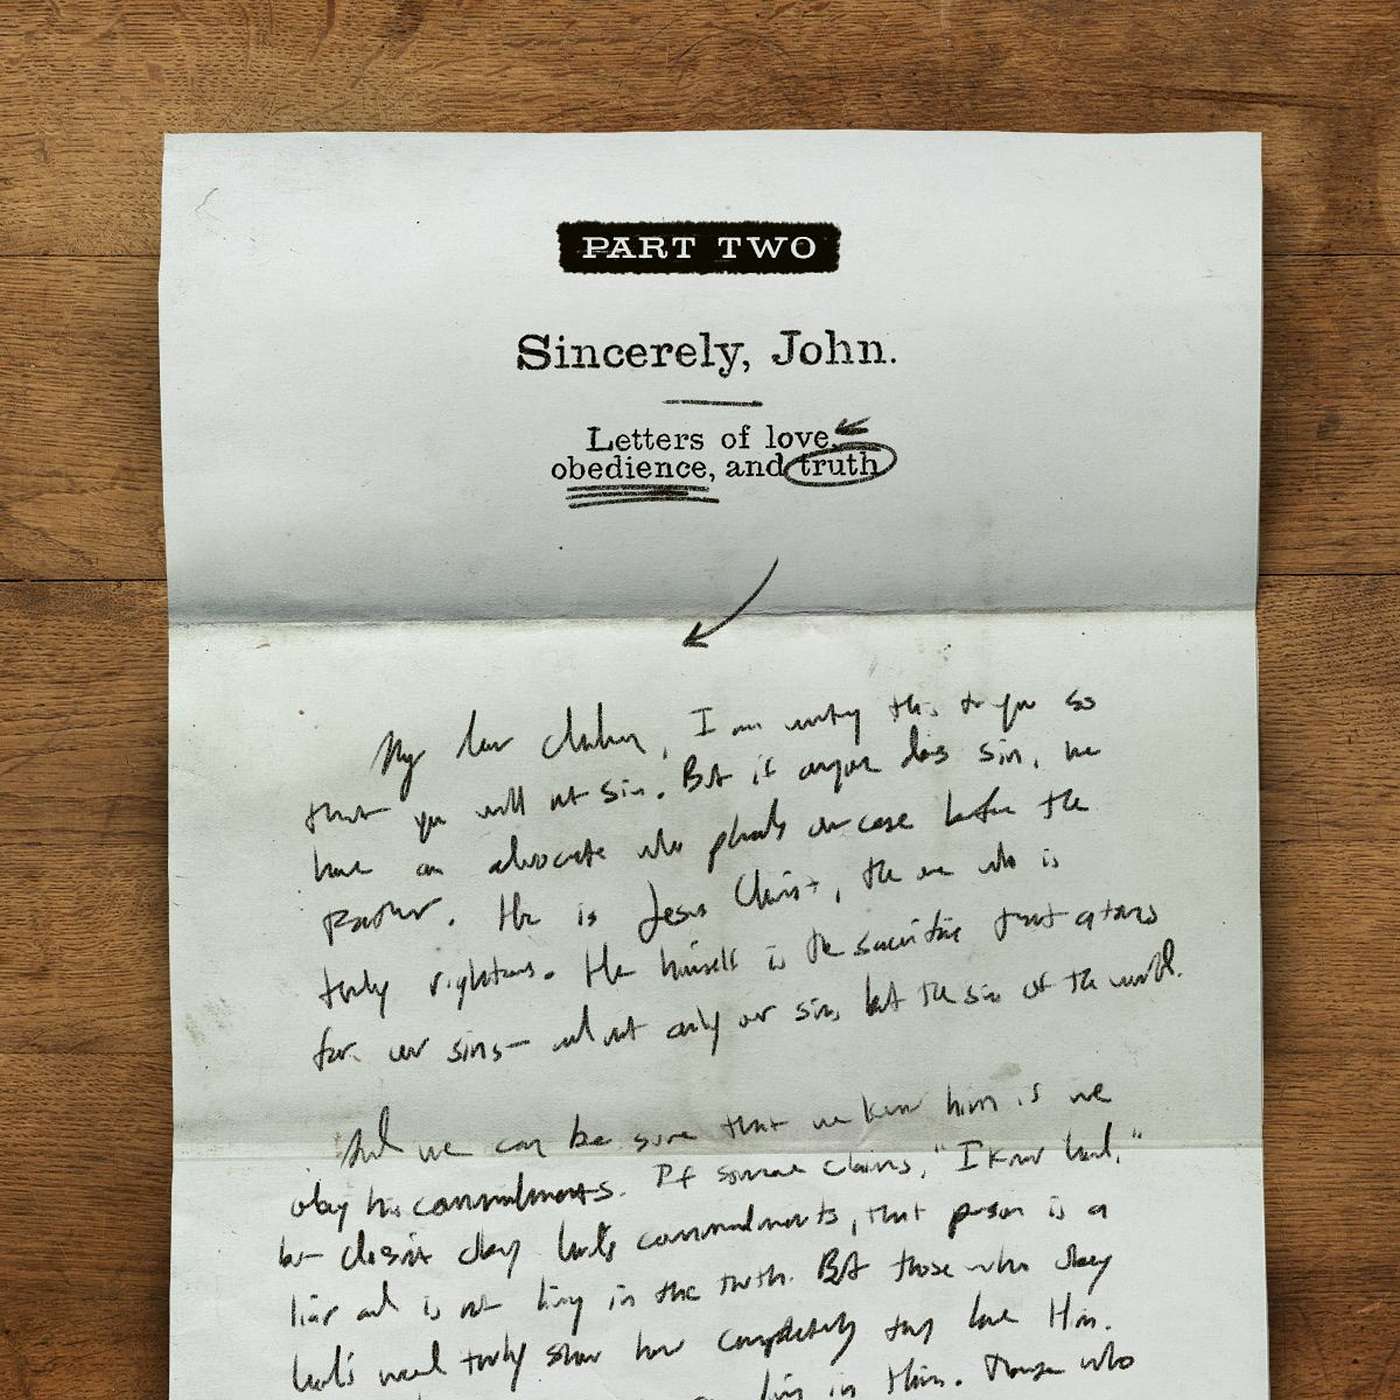 PART TWO
Sincerely, John.
Letters of love,
obedience, and truth
My dear children, I am writing this to you so
that you will not sin. But if anyone does sin, we
have an advocate who pleads our case before the
Father. He is Jesus Christ, the one who is
truly righteous. He himself is the sacrifice that atones
for our sins— and not only our sins but the sin of the world.
And we can be sure that we know him is we
obey his commandments. If someone claims, "I know God,"
but doesn't obey God's commandments, that person is a
liar and is not living in the truth. But those who obey
God's word truly show how completely they love Him.
living in Him. Those who